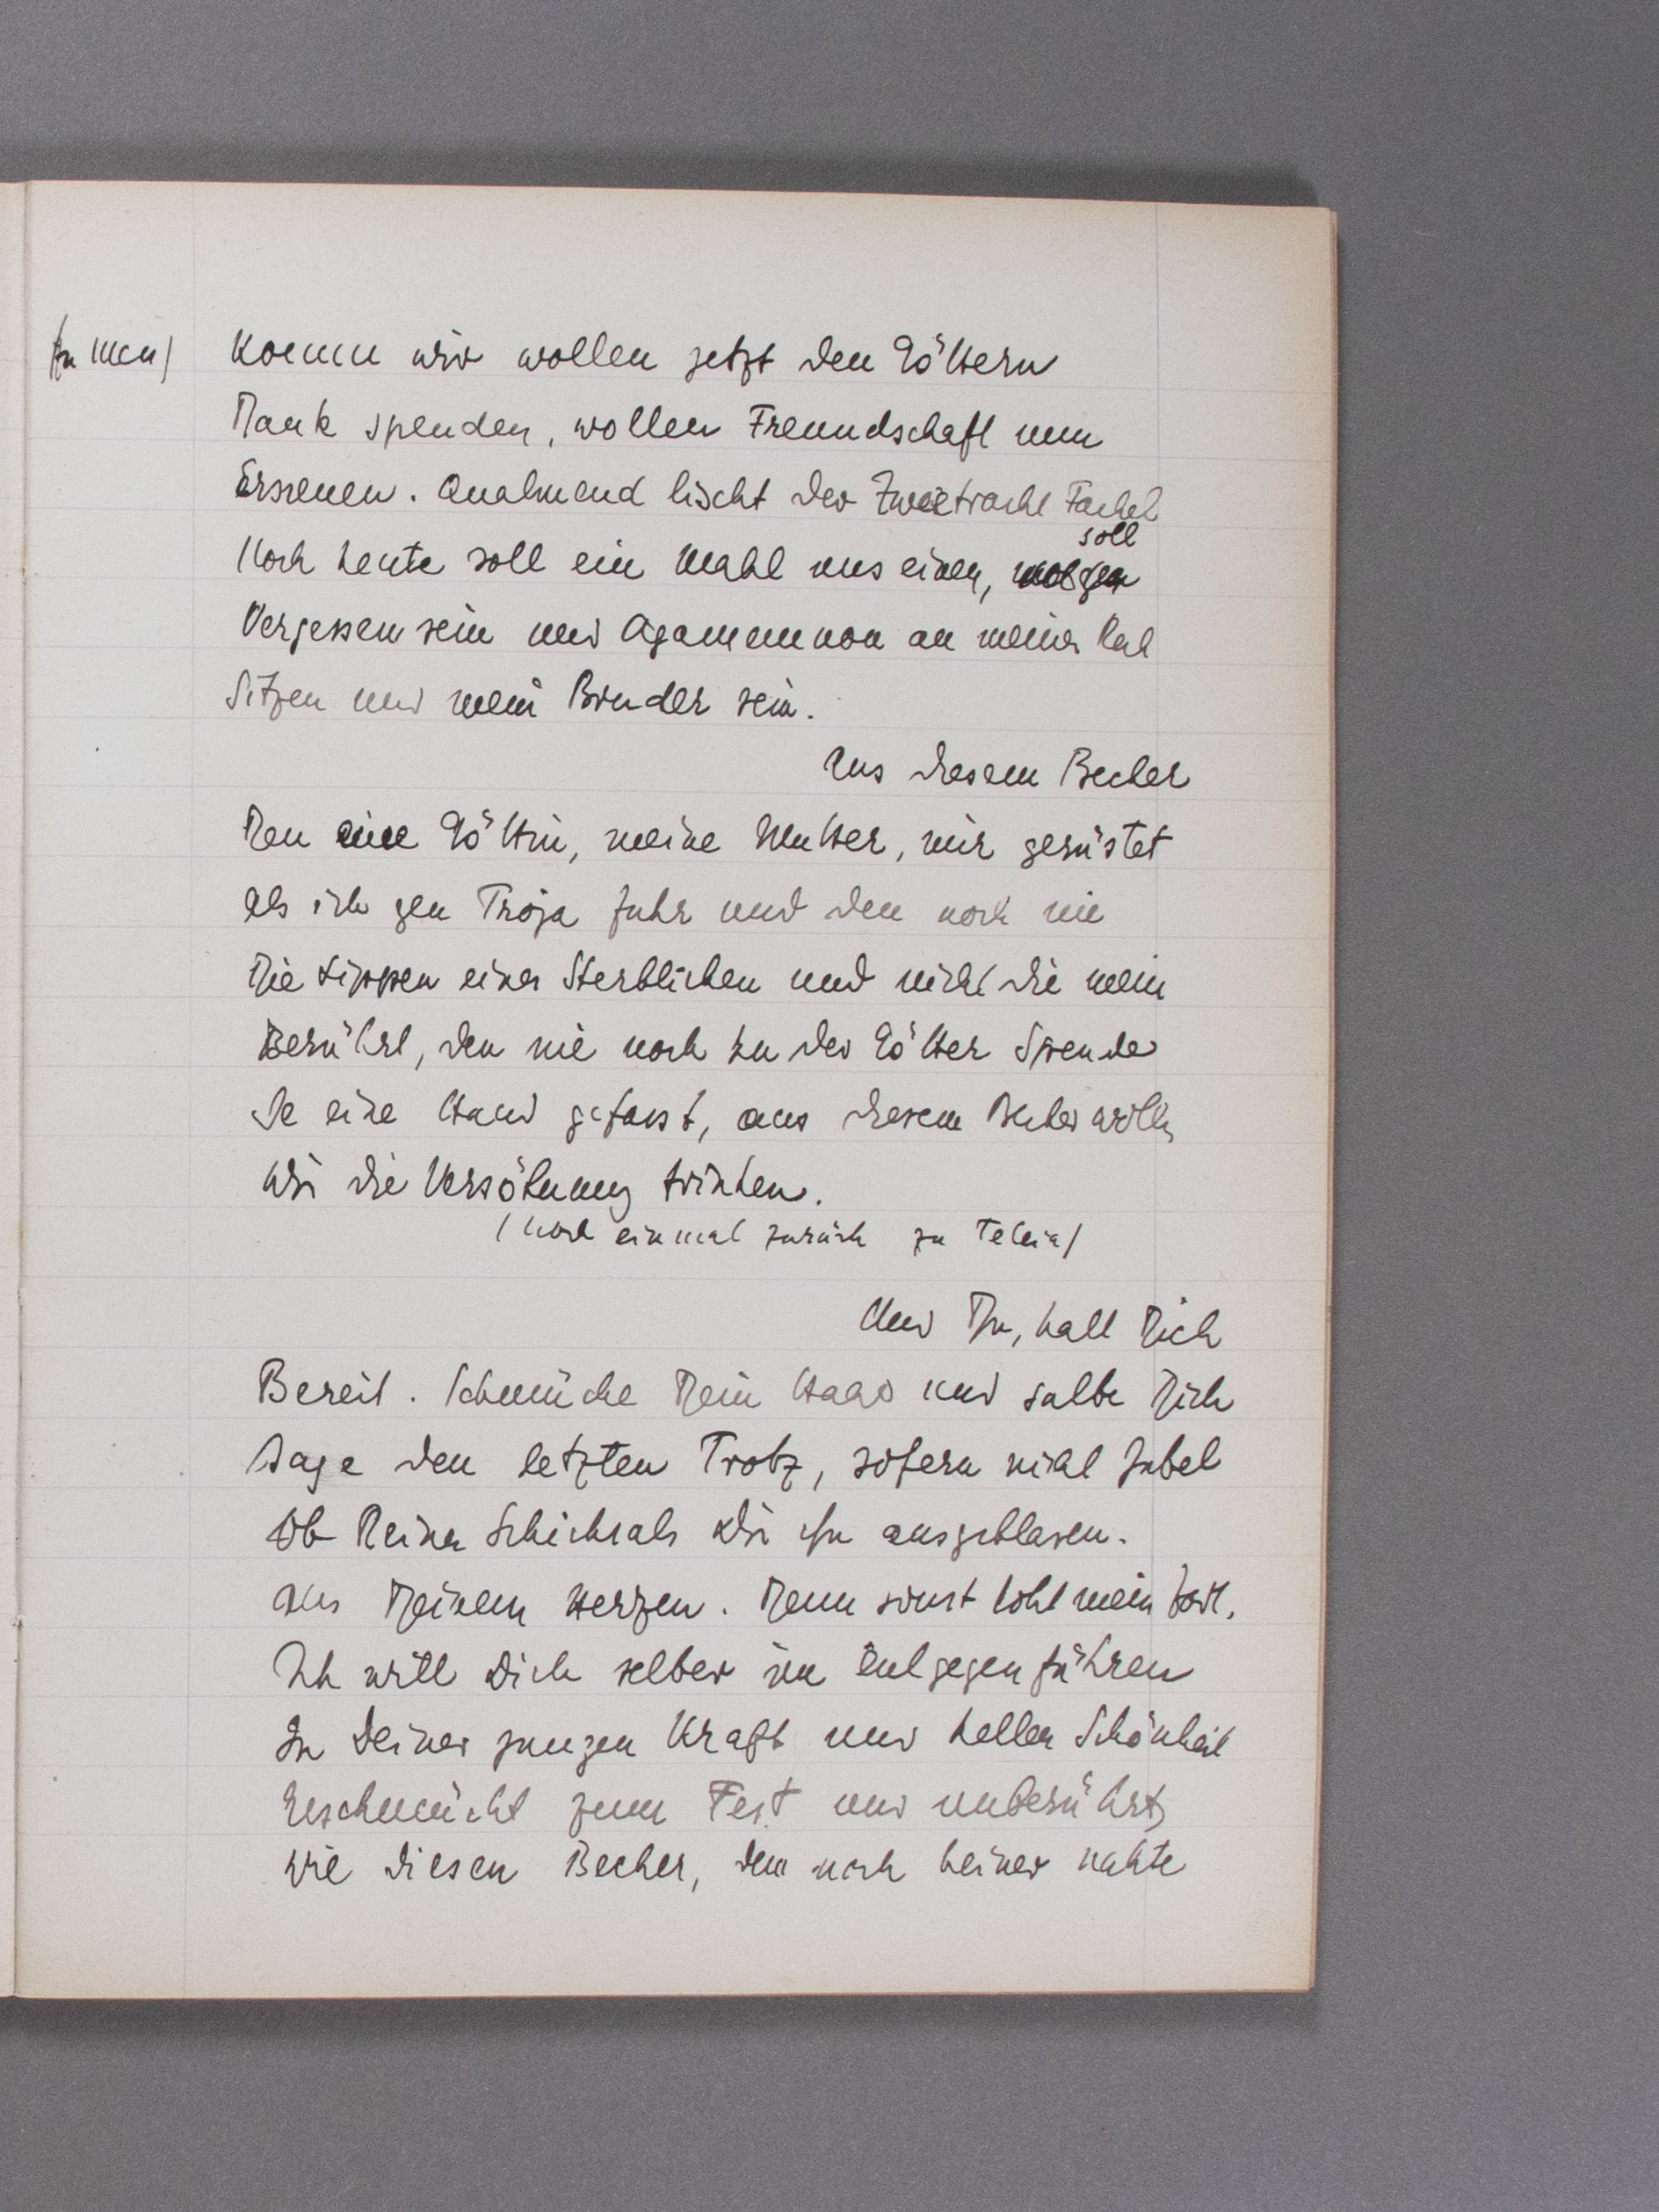 Komm wir wollen jetzt den Göttern
Dank spenden, wollen Freundschaft nun
Erneuen. Qualmend lischt der Zwietracht Fackel
soll
Noch heute soll ein Mahl uns einen,
Vergessen sein und Agamemnon an meiner
Sitzen und mein Bruder sein.
Aus diesem Becher
Den eine Göttin, meine Mutter, mir gerüstet
Als ich gen Troja fuhr und den noch nie
Die Lippen eines Sterblichen und nicht die mein
Berührt, den nie noch zu der Götter Spende
Je eine Hand gefasst, aus diesem Becher wolln
Wir die Versöhnung trinken.
(noch einmal zurück zu Teleia)
Und Du, halt Dich
Bereit. Schmücke Dein Haar und salbe Dich
Sage den letzten Trotz, sofern nicht Jubel
Ob Deines Schicksals Dir ihn ausgeblasen.
Aus Deinem Herzen. Denn sonst loht mein Zorn.
Ich will Dich selber ihm entgegenführen
In Deiner jungen Kraft und hellen Schönheit
Geschmückt zum Fest und unberührt,
Wie diesen Becher, dem noch keiner nahte